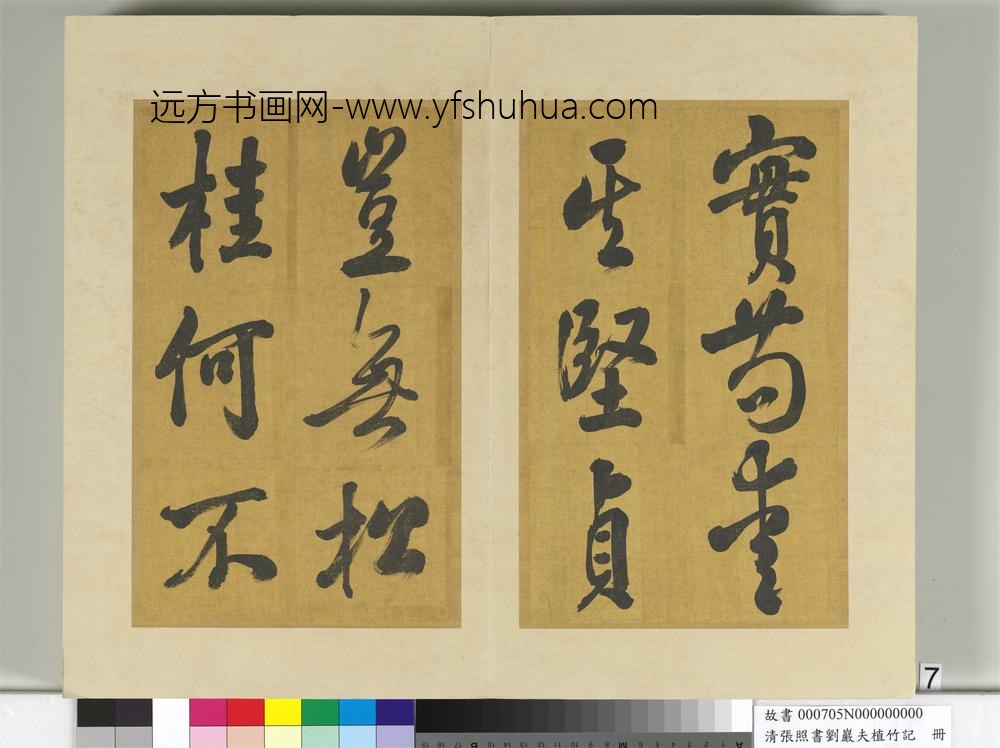 远方书画网-www.yfshuhua.com
實苟愛
其堅貞
豈無松
桂何不
7
故書 000705N000000000
清張照書劉巖夫植竹記 冊